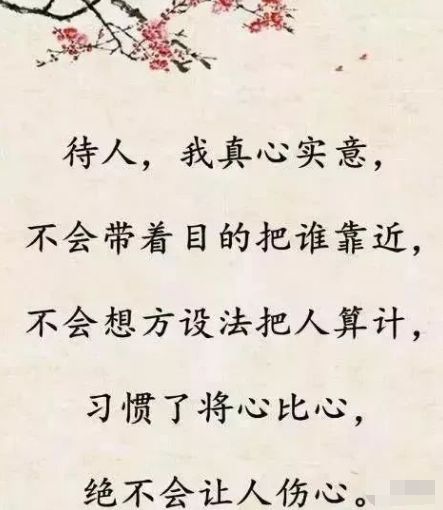 待人，我真心实意，
不会带着目的把谁靠近，
不会想方设法把人算计，
习惯了将心比心，
绝不会让人伤心。